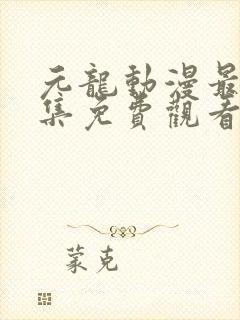 元龍動漫最
集免費觀看
蒙克